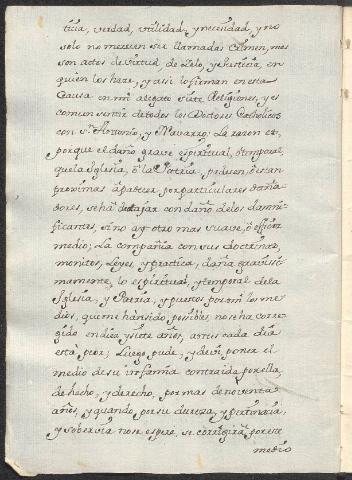 ticia, verdad, utilidad, y necesidad, y no
solo no merecen ser llamadas Crimen, mas
son actos de virtud de Zelo, y Justicia, en
quien los hace, y assi lo firman en esta
Causa en mi alegato siete Religiones, y es
comun sentir de todos los Doctores Catholicos
con Sn. Antonio, y Navarro. La razon es,
porque el daño grave espiritual, ô temporal,
que la Iglesia, ô la Patria padecen, ô estan
proximas â padecer, por particulares daña
dores, se hâ de atajar con daño de los damni
ficantes, si no ay otro mas suave, ô eficaz
medio; La compañia con sus doctrinas,
monitos, Leyes, y practica, daña gravissi
mamente, lo espiritual, y temporal de la
Iglesia, y Patria, y puestos por mi los me
dios, que me hân sido possibles, no se ha corre
gido en diez y siete años, antes cada dia
està peor; Luego pude, y devi poner el
medio de su infamia contraida por ella,
de hecho, y derecho, por mas de noventa
años, y quando por su dureza, y pertinacia,
y sobervia no se espere, se corregirà por este
medio